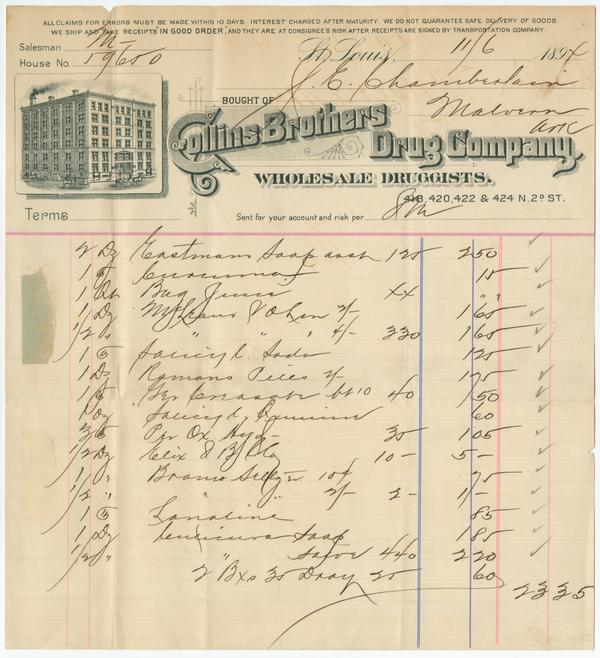 ALL CLAIMS FOR ERRORS MUST BE MADE WITHIN 10 DAYS. INTEREST CHARGED AFTER MATURITY. WE DO NOT GUARANTEE SAFE DELIVERY OF GOODS.
WE SHIP AND TAKE RECEIPTS "IN GOOD ORDER", AND THEY ARE AT CONSIGNEE'S RISK AFTER RECEIPTS ARE SIGNED BY TRANSPORTATION COMPANY.
Salesman M-
House No. 59650
St. Louis, 11/6 1894
J. E. Chamberlain
BOUGHT OF
Malvern
Ark
Collins Brothers
Drug Company,
WHOLESALE DRUGGISTS.
418, 420, 422 & 424 N. 2D ST.
Terms
Sent for your account and risk per
2 Dz Eastmans Soap asst 125 250
1 15
1 XX " "
1 Dz 2/- 165
1/2 " " " " 4/- 330 165
1 Salicyl. Soda 125
1 Dz Ramons Pills 2/- 175
1 Creasote 40 50
1 Oz Salicyl. 60
3 Per Ox Hyg- 35 105
1/2 Dz Elix 10- 5-
1 " Bromo Seltzer 10¢ 75
1/2 " " " 2/- 2- 1/-
1 Lanoline 85
1 Dz Cuticura Soap 185
1/2 " " Salve 440 220
2 Bxs 35 Dray 25 60
2335